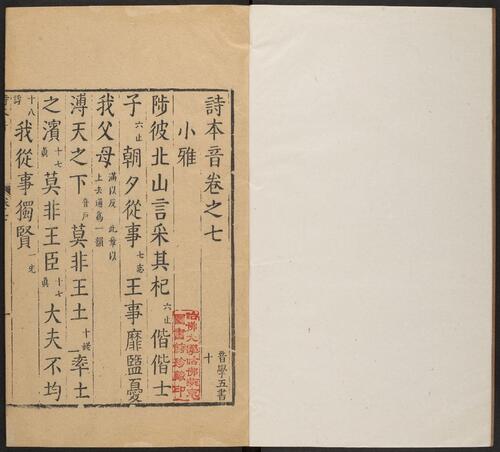 詩本音卷之七
小雅
陟彼北山言采其杞六止偕偕士
子六止朝夕從事七志王事靡盬憂
我父母滿以反此章以上去通爲一韻
溥天之下音戶莫非王土十姥率土
之濱十七眞莫非王臣十七眞大夫不均
十八諄我從事獨賢一先
音學五書
十
哈佛大學哈佛燕京
圖書館珍藏印